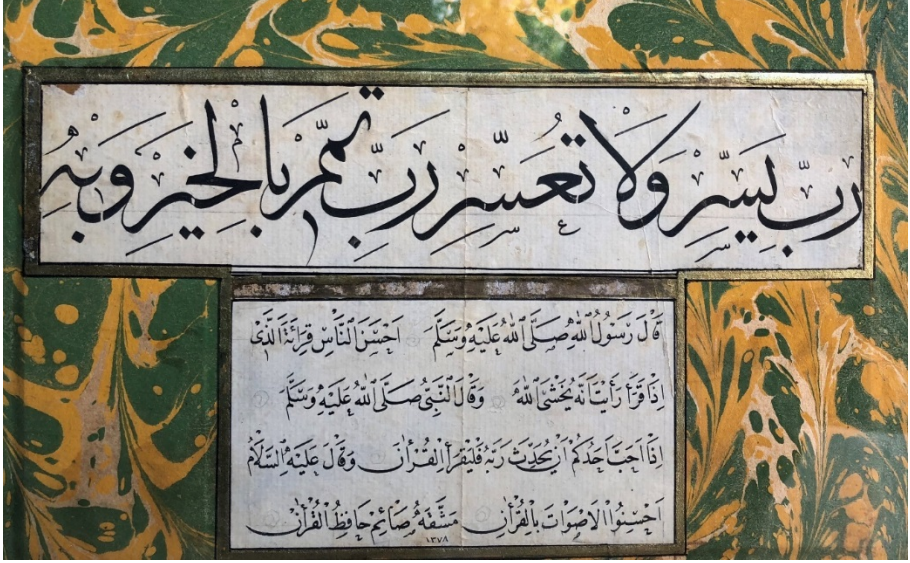 رَبِّ يَسِّرْ وَلَا تُعَسِّرْ رَبِّ تَمِّمْ بِالْخَيْرِ وَبِهِ
قَالَ رَسُولُ اللّٰهِ صَلَّى اللّٰهُ عَلَيْهِ وَسَلَّمَ اَحْسَنُ النَّاسِ قِرَائَةً الَّذٖى
اِذَا قَرَأَ رَأَيْتَ اَنَّهُ يَخْشَى اللّٰهَ وَقَالَ النَّبِىُّ صَلَّى اللّٰهُ عَلَيْهِ وَسَلَّمَ
اِذَا اَحَبَّ اَحَدُكُمْ اَنْ يُحَدِّثَ رَبَّهُ فَلْيَقْرَأِ الْقُرْاٰنَ وَقَالَ عَلَيْهِ السَّلَامُ
اَحْسِنُوا الْاَصْوَاتَ بِالْقُرْاٰنِ مَشَّقَهُ صَائِمْ حَافِظُ الْقُرْاٰنِ
١٣٧٨